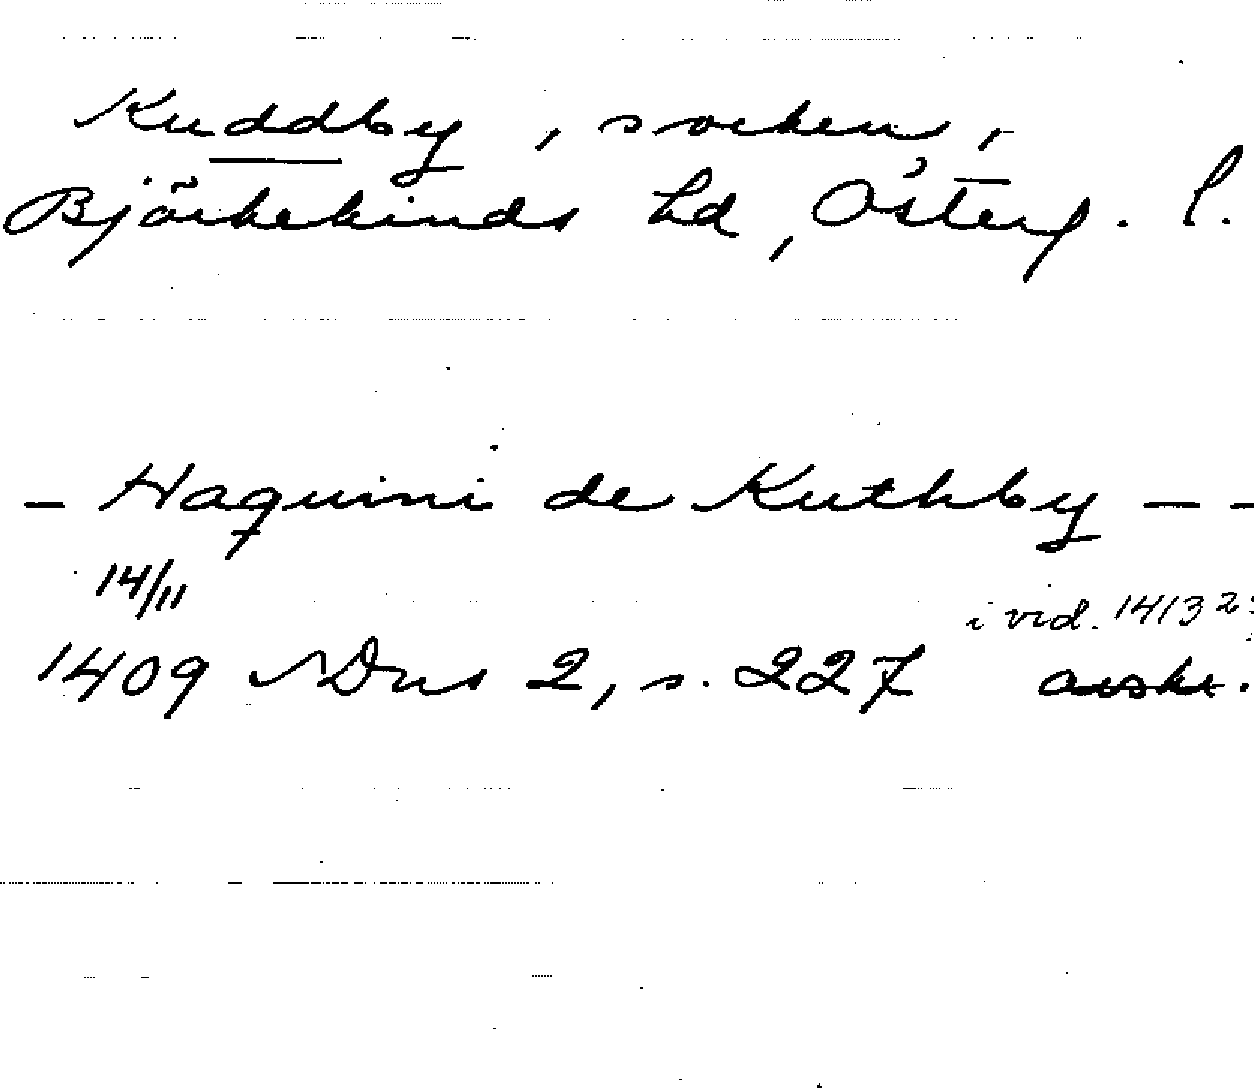 Kuddby, socken,
Björkekinds hd, Österg. l.
- Haquini de Kuthby - -
14/11
i vid. 1413 2
1409 NDns 2, s. 227 avskr.